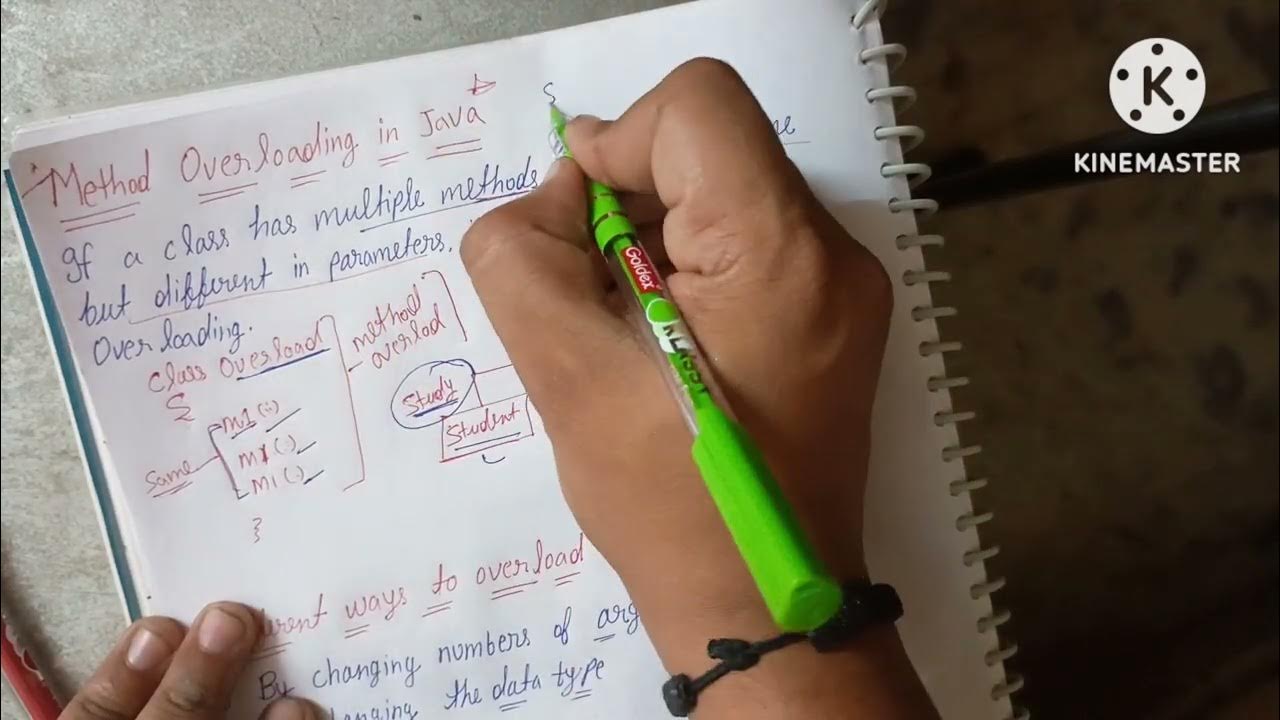 Method Overloading in Java
S
If a class has multiple methods
but different in parameters.
Overloading.
class Overload
{
M1 (:)
M1 (.)
M1 (.)
}
Same
method
overlod
Study
Student
ways to overload
By changing numbers of
the data type
Goldex
KLASSY
K
KINEMASTER